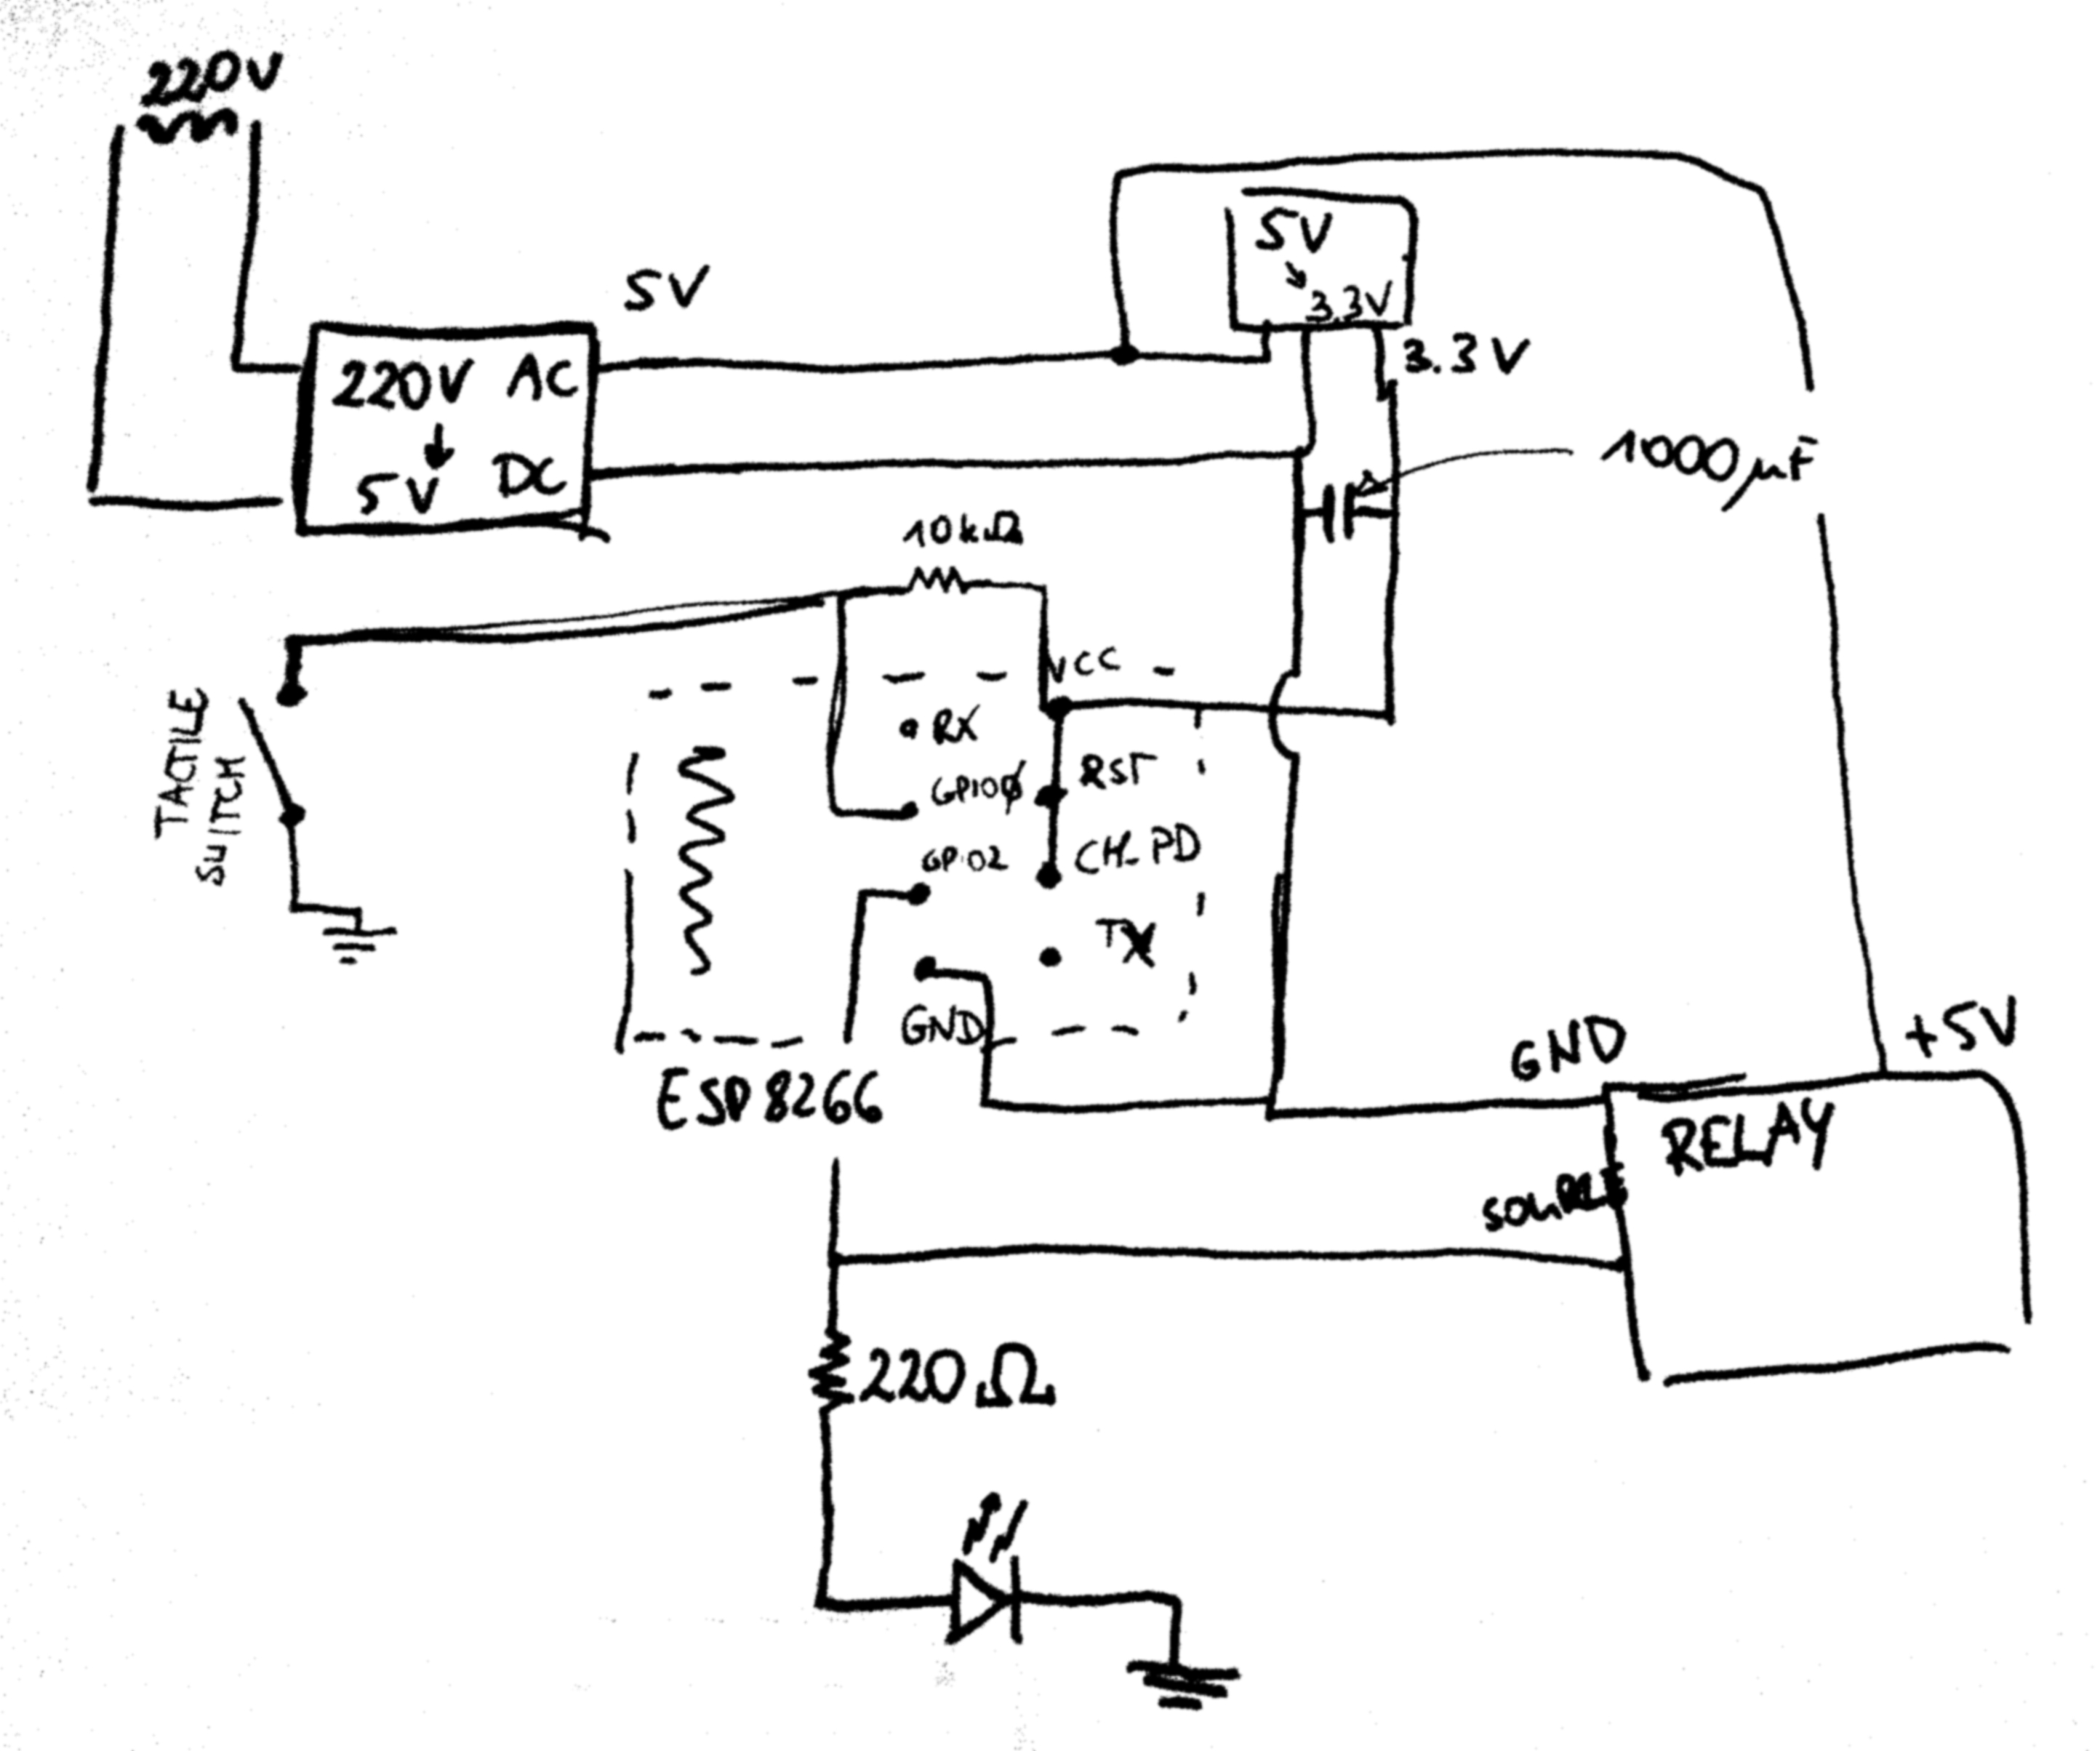 220V
5V
220V AC
↓
5V DC
5V
↘
3.3V
3.3V
1000µF
10kΩ
VCC
TACTILE
SWITCH
RX
RST
GPIO0
GPIO2
CH_PD
TX
GND
ESP8266
GND
+5V
RELAY
220Ω